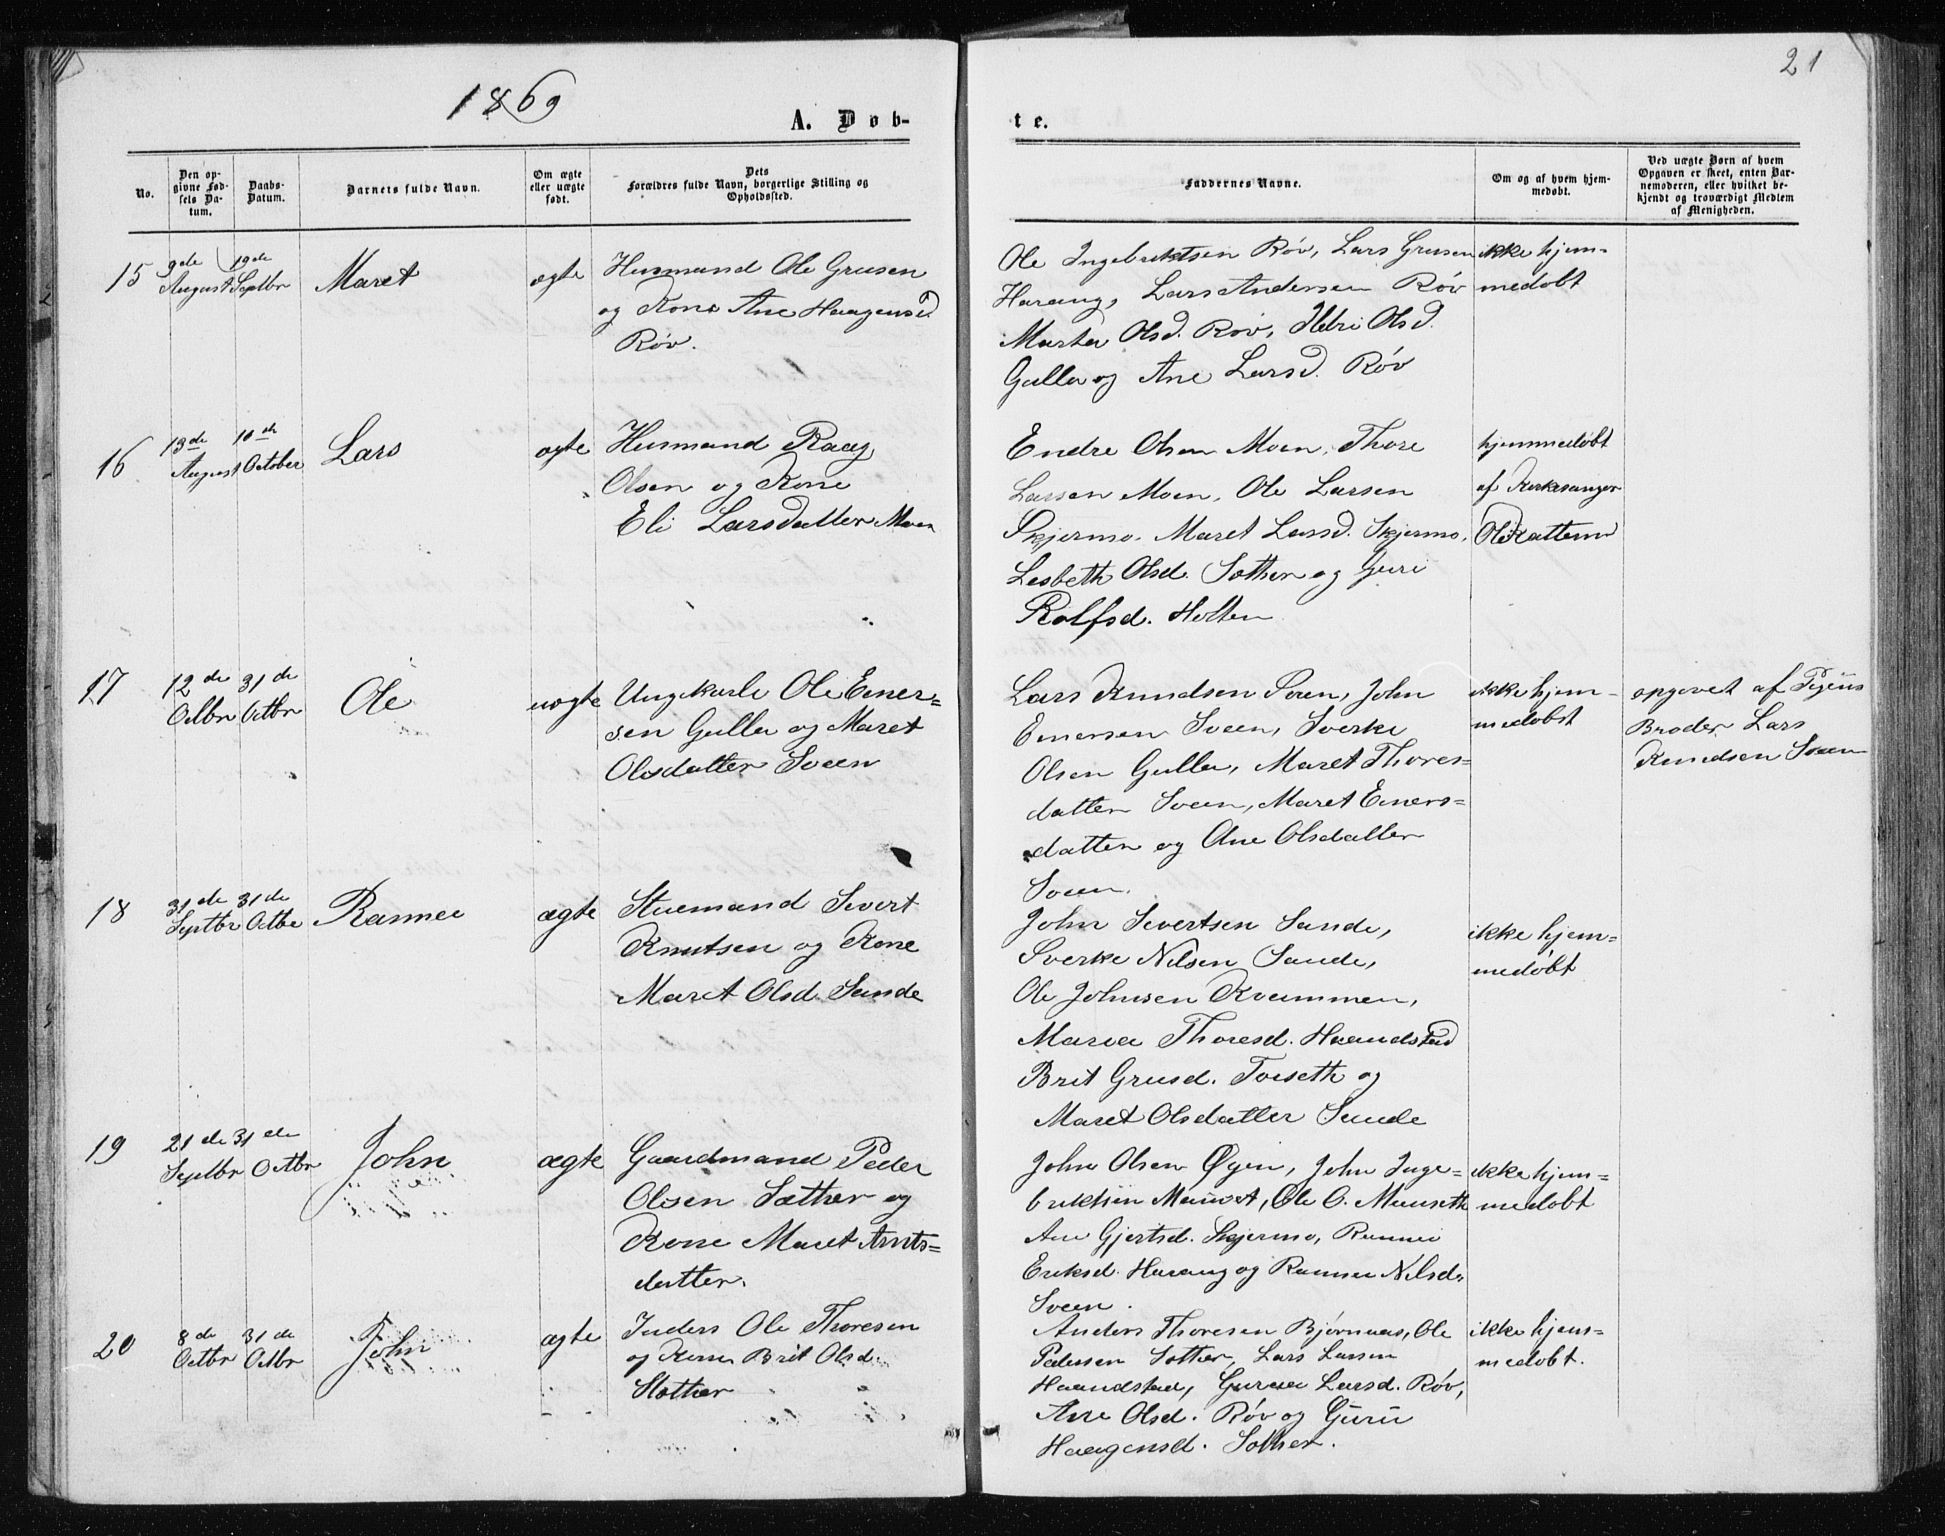 21
1869
A. Døb-
te.
No.
Den op-
givne Fød-
sels Da-
tum.
Daabs-
Datum.
Barnets fulde Navn.
Om ægte
eller uægte
født.
Dets
Forældres fulde Navn, borgerlige Stilling og
Opholdssted.
Faddernes Navne.
Om og af hvem hjem-
medøbt.
Ved uægte Børn af hvem
Opgaven er skeet, enten Bar-
nemoderen, eller hvilket be-
kjendt og troværdigt Medlem
af Menigheden.
15
9de
August
19de
Septbr
Maret
ægte
Husmand Ole Grusen
og Kone Ane Haagensd
Røv.
Ole Ingebriktsen Røv, Lars Grusen
Harang, Lars Andersen Røv
Marta Olsd. Røv, Ildri Olsd.
Gulla og Ane Larsd. Røv
ikke hjem-
medøbt
16
13de
August
10de
October
Lars
ægte
Husmand Raag
Olsen og Kone
Eli Larsdatter Moen
Endre Olsen Moen, Thore
Larsen Moen, Ole Larsen
Skjermo. Maret Larsd. Skjermo,
Lesbeth Olsd. Sæther og Guri
Rolfsd. Holten
hjemmedøbt
af Kirkesanger
Ole Kattem
17
12de
Octbr
31de
Octbr
Ole
uægte
Ungkarl Ole Einer-
sen Gulla og Maret
Olsdatter Sveen
Lars Knudsen Sveen, John
Einersen Sveen, Sverke
Olsen Gulla, Maret Thores-
datter Sveen, Maret Einers-
datter og Ane Olsdatter
Sveen.
ikke hjem-
medøbt
opgivet af Pigens
Broder Lars
Knudsen Sveen
18
31de
Septbr
31de
Octbr
Rannei
ægte
Stuemand Sivert
Knutsen og Kone
Maret Olsd. Sande
John Sivertsen Sande,
Sverke Nilsen Sande,
Ole Johnsen Kvammen,
Maria Thoresd. Haandstad
Brit Grusd. Toiseth og
Maret Olsdatter Sande
ikke hjem-
medøbt
19
21de
Septbr
31de
Octbr
John
ægte
Gaardmand Peder
Olsen Sæther og
Kone Maret Arnts-
datter.
John Olsen Øyen, John Inge-
briktsen Mauset, Ole O. Mauseth
Ane Gjertsd. Skjermo, Rannei
Eriksd. Harang og Rannei Nilsd.
Sveen.
ikke hjem-
medøbt
20
8de
Octbr
31de
Octbr
John
ægte
Inders Ole Thoresen
og Kone Brit Olsd.
Sæther
Anders Thoresen Bjørnaas, Ole
Pedersen Sæther, Lars Larsen
Haandstad, Gurua Larsd. Røv,
Ane Olsd. Røv og Guru
Haagensd. Sæther.
ikke hjem-
medøbt.